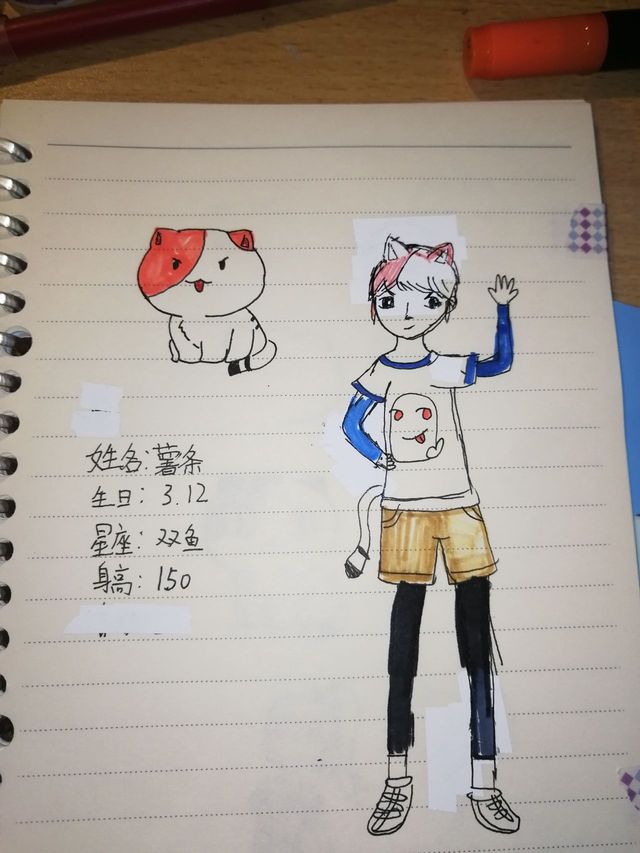 姓名:薯条
生日: 3.12
星座: 双鱼
身高: 150